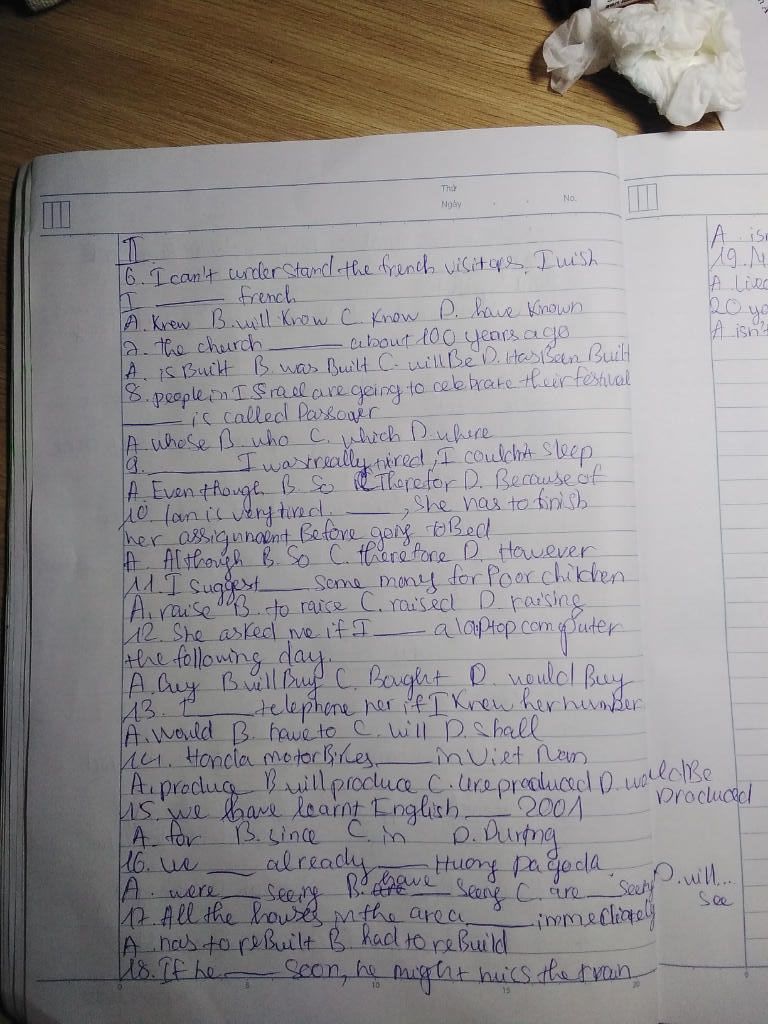 Thứ
Ngày . . No.
II
6. I can't understand the french visitors. I wish
I ______ french
A. Knew B. will Know C. Know D. have Known
7. the church ______ about 100 years ago
A. is Built B. was Built C. will Be D. Has Been Built
8. people in ISrael are going to celebrate their festival
______ is called Passover
A. whose B. who C. which D. where
9. ______ I was really tired, I couldn't sleep
A. Even though B. So C. Therefor D. Because of
10. lan is very tired. ____, she has to finish
her assignment Before going to Bed
A. Although B. So C. therefore D. However
11. I suggest ____ some money for Poor children
A. raise B. to raise C. raised D. raising
12. She asked me if I ____ a laptop computer
the following day.
A. Buy B will Buy C. Bought D. would Buy
13. I ____ telephone her if I Knew her number
A. Would B. have to C. will D. Shall
14. Honda motorBikes ____ in Viet Nam
A. produce B will produce C. are produced D. would Be
produced
15. we have learnt English ____ 2001
A. for B. since C. in D. During
16. we ____ already ____ Huong pagoda
A. were __ seeing B. have __ seeng C. are __ seeng D. will...
see
17. All the houses in the area ____ immediately
A. has to reBuilt B. had to reBuild
18. If he ____ soon, he might miss the train
A. isn
19. M
A lived
20 yo
A isn't
0 5 10 15 20
0